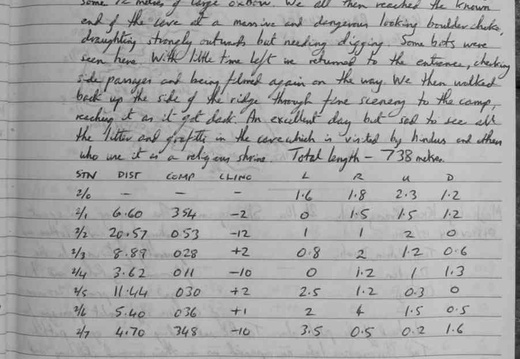 some 12 metres of large oxbow. We all then reached the known
end of the cave at a massive and dangerous looking boulder choke,
draughting strongly outwards but needing digging. Some bats were
seen here. With little time left we returned to the entrance, checking
side passages and being filmed again on the way. We then walked
back up the side of the ridge through fine scenery to the camp,
reaching it as it got dark. An excellent day but sad to see all
the litter and graffiti in the cave which is visited by hindus and others
who use it as a religious shrine. Total length - 738 metres
STN DIST COMP CLINO L R U D
2/0 - - - 1.6 1.8 2.3 1.2
2/1 6.60 354 -2 0 1.5 1.5 1.2
2/2 20.57 053 -12 1 1 2 0
2/3 8.89 028 +2 0.8 2 1.2 0.6
2/4 3.62 011 -10 0 1.2 1 1.3
2/5 11.44 030 +2 2.5 1.2 0.3 0
2/6 5.40 036 +1 2 4 1.5 0.5
2/7 4.70 348 -10 3.5 0.5 0.2 1.6